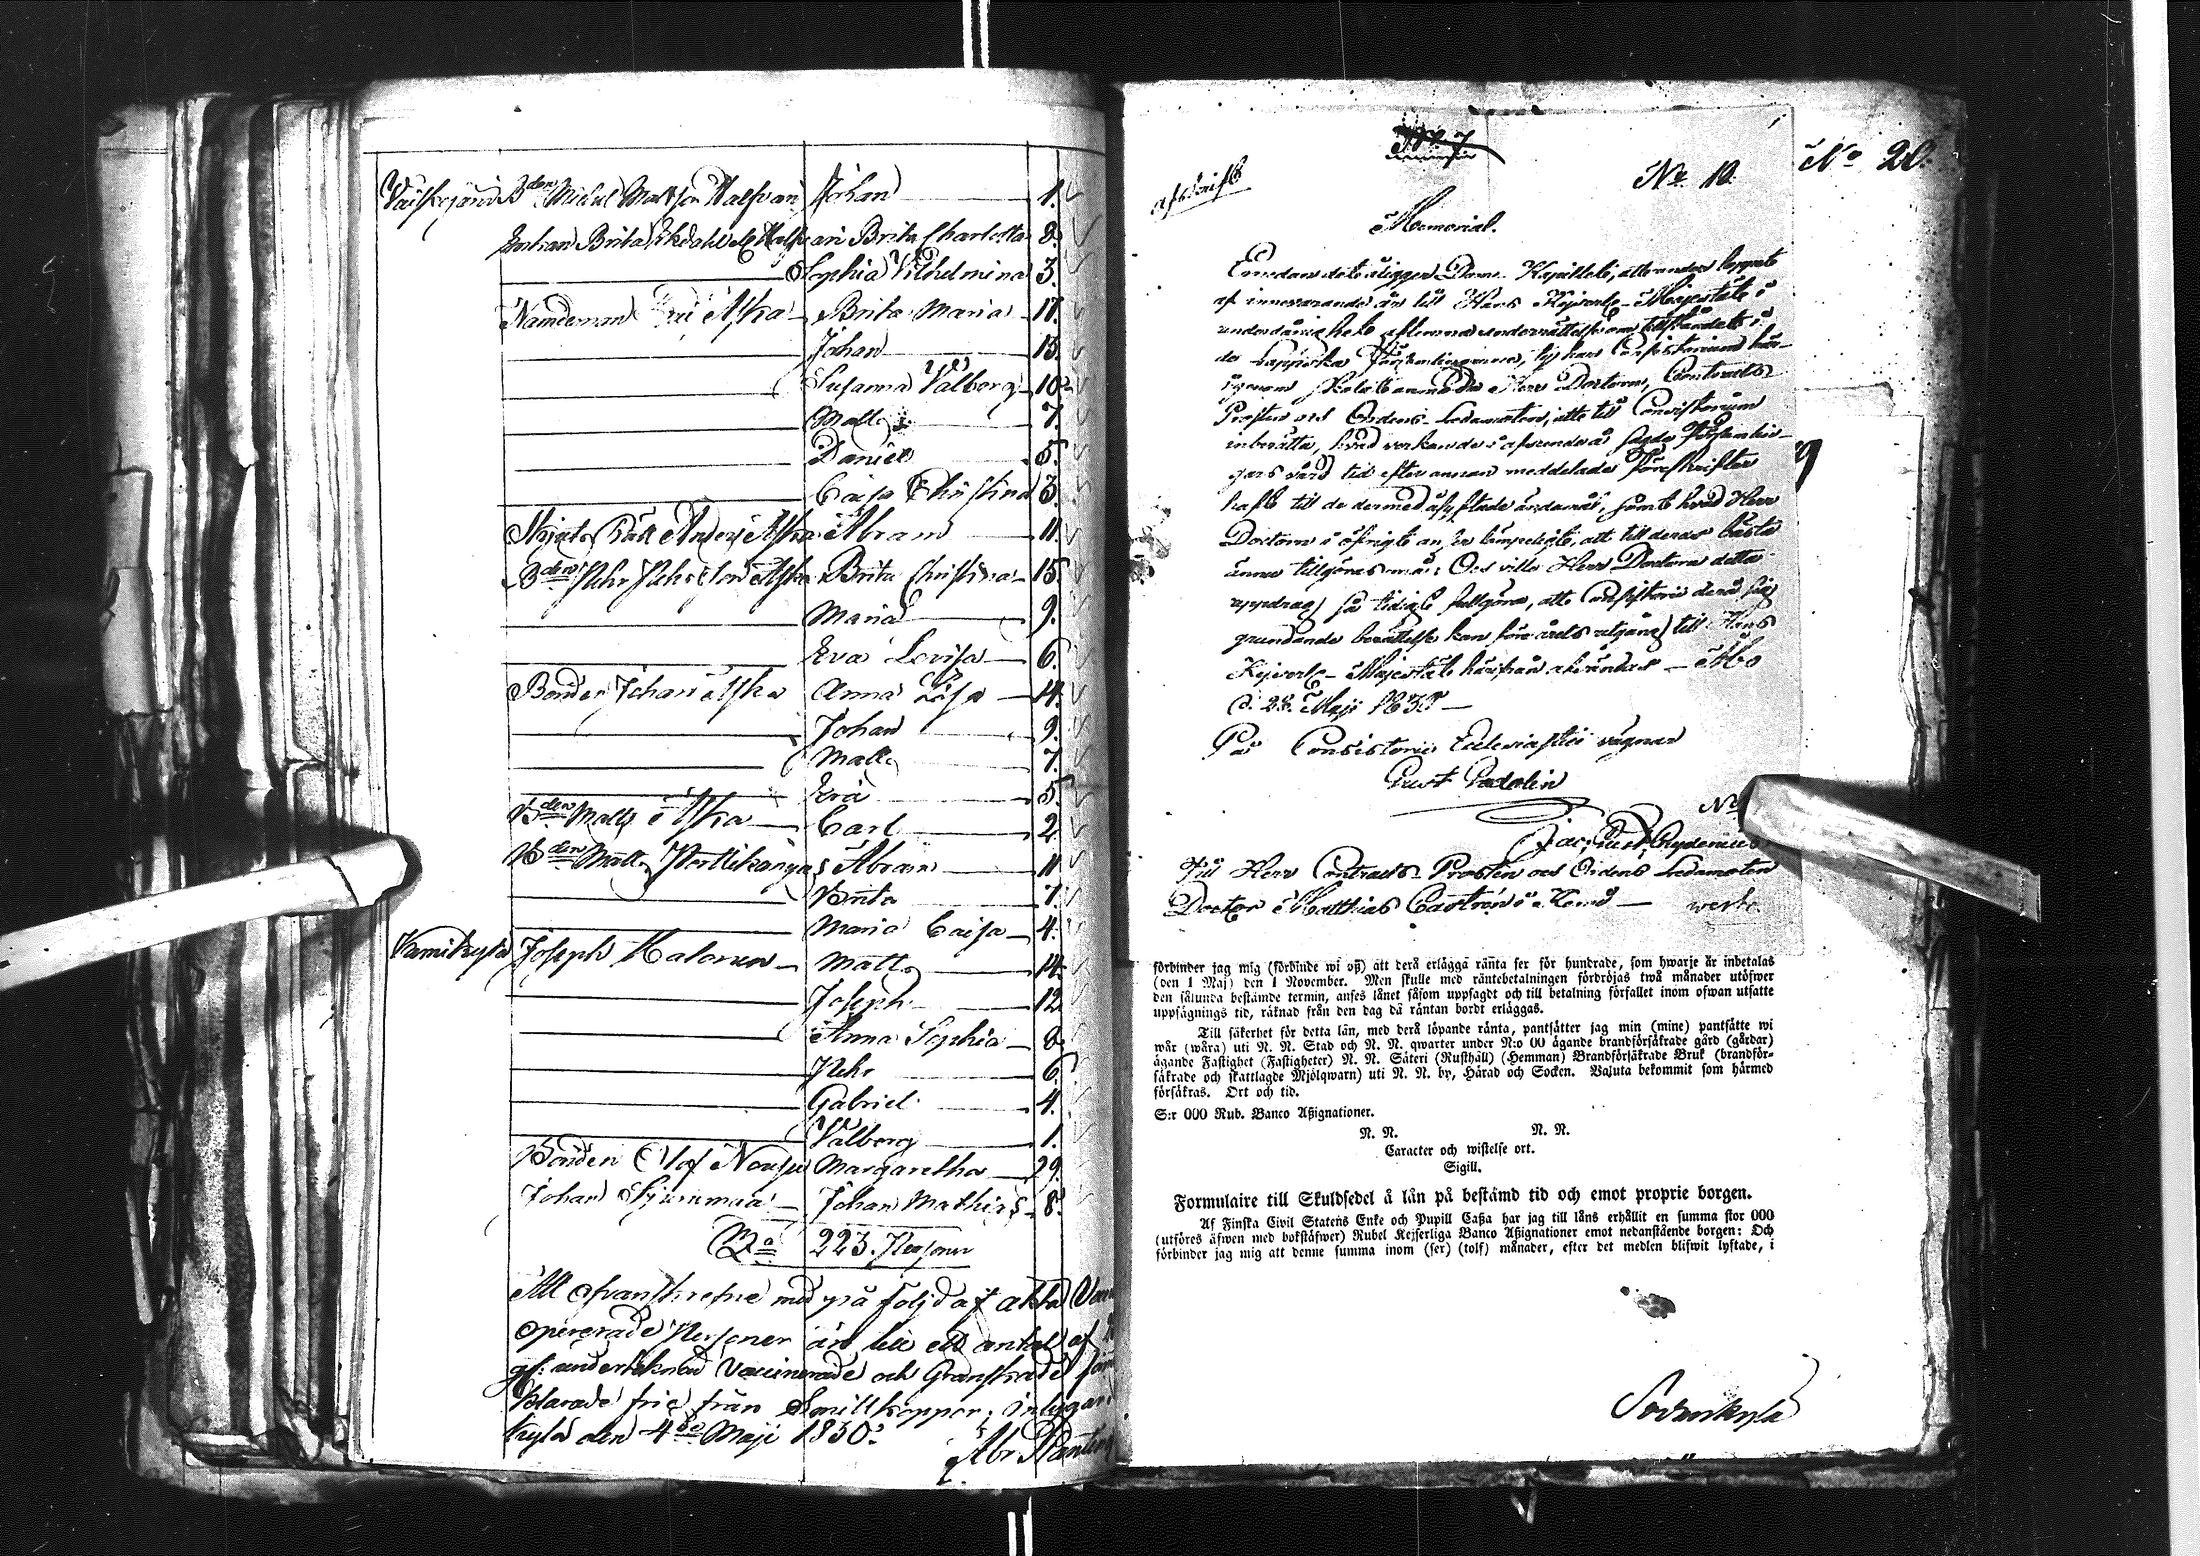 Bden Michel Mattson Halfvari Johan 1.
Enkan Brita Ekdahl Halfvari Brita Charlotta 8.
Sophia Vilhelmina 3.
Nämdeman Aska Brita Maria 17.
Johan 13.
Susanna Valborg 10.
Matts 7.
Daniel 5.
Caisa Christina 3.
Anders Aska Abram 11.
Bden Pehr Pehrsson Aska Brita Christina 15.
Maria 9.
Eva Lovisa 6.
Bonden Johan Aska Anna Lisa 14.
Johan 9.
Matts 7.
Eva 5.
Bden Matts Aska Carl 2.
Bden Matts Abram 11.
Brita 7.
Maria Caisa 4.
Joseph Halonen Matts 14.
Joseph 12
Anna Sophia 8.
Pehr 6.
Gabriel 4.
Valborg 1.
Bonden Olof Margaretha 29.
Johan Johan Mathias 8.
223. Personer
Att ofvanskrefne med på följd af äkta
opererade Personer är till ett antal af
underteknad Vaccinerade och Granskade
klarade frie från Smittkoppor; intygar
kylä den 4de Maji 1830.
Abr
No 7
No 10.
No 20.
afskrift
Memorial.
Emedan det åligger Dom-Kapitlet, att under loppet
af innevarande år till Hans Kejserl. Majestät i
underdånighet aflemna underrättelse om tillståndet i
de Lappska Församlingarne, Consistorium här-
igenom skolat anmoda Herr Doctorn, Contracts-
Prosten och Ordens-Ledamoten, att till Consistorium
inberätta, hvad verkan de i afseende å sagde Församlin-
gars vård tid efter annan meddelade Föreskrifter
haft till de dermed åsyftade ändamål, samt hvad Herr
Doctorn i öfrigt anser lämpeligt, att till deras bästa
ännu tillgöras må; Och ville Herr Doctorn detta
uppdrag så tidigt fullgöra, att Consistorii derå sig
grundande berättelse kan före årets utgång till Hans
Kejserl. Majestät härifrån afsändas — Åbo
d. 28. Maji 1830 —
På Consistorii Ecclesiastici vägnar
Gust Gadolin
No
Jac. Gust.
Till Herr Contracts-Prosten och Ordens Ledamoten
Doctor Matthias Castrén i Kemi —
förbinder jag mig (förbinde wi oß) att derå erlägga ränta ser för hundrade, som hwarje år inbetalas
(den 1 Maj) den 1 November. Men skulle med räntebetalningen fördröjas twå månader utöfwer
den sålunda bestämde termin, anses lånet såsom uppsagdt och till betalning förfallet inom ofwan utsatte
uppsägnings tid, räknad från den dag då räntan bordt erläggas.
Till säkerhet för detta lån, med derå löpande ränta, pantsätter jag min (mine) pantsätte wi
wår (wåra) uti N. N. Stad och N. N. qwarter under N:o 00 ägande brandförsäkrade gård (gårdar)
ägande Fastighet (Fastigheter) N. N. Säteri (Rusthåll) (Hemman) Brandförsäkrade Bruk (brandför-
säkrade och skattlagde Mjölqwarn) uti N. N. by, Härad och Socken. Valuta bekommit som härmed
försäkras. Ort och tid.
S:r 000 Rub. Banco Aßignationer.
N. N. N. N.
Caracter och wistelse ort.
Sigill.
Formulaire till Skuldsedel å lån på bestämd tid och emot proprie borgen.
Af Finska Civil Statens Enke och Pupill Caßa har jag till låns erhållit en summa stor 000
(utföres äfwen med bokstäfwer) Rubel Kejserliga Banco Aßignationer emot nedanstående borgen: Och
förbinder jag mig att denne summa inom (ser) (tolf) månader, efter det medlen blifwit lyftade, i
Sodankylä